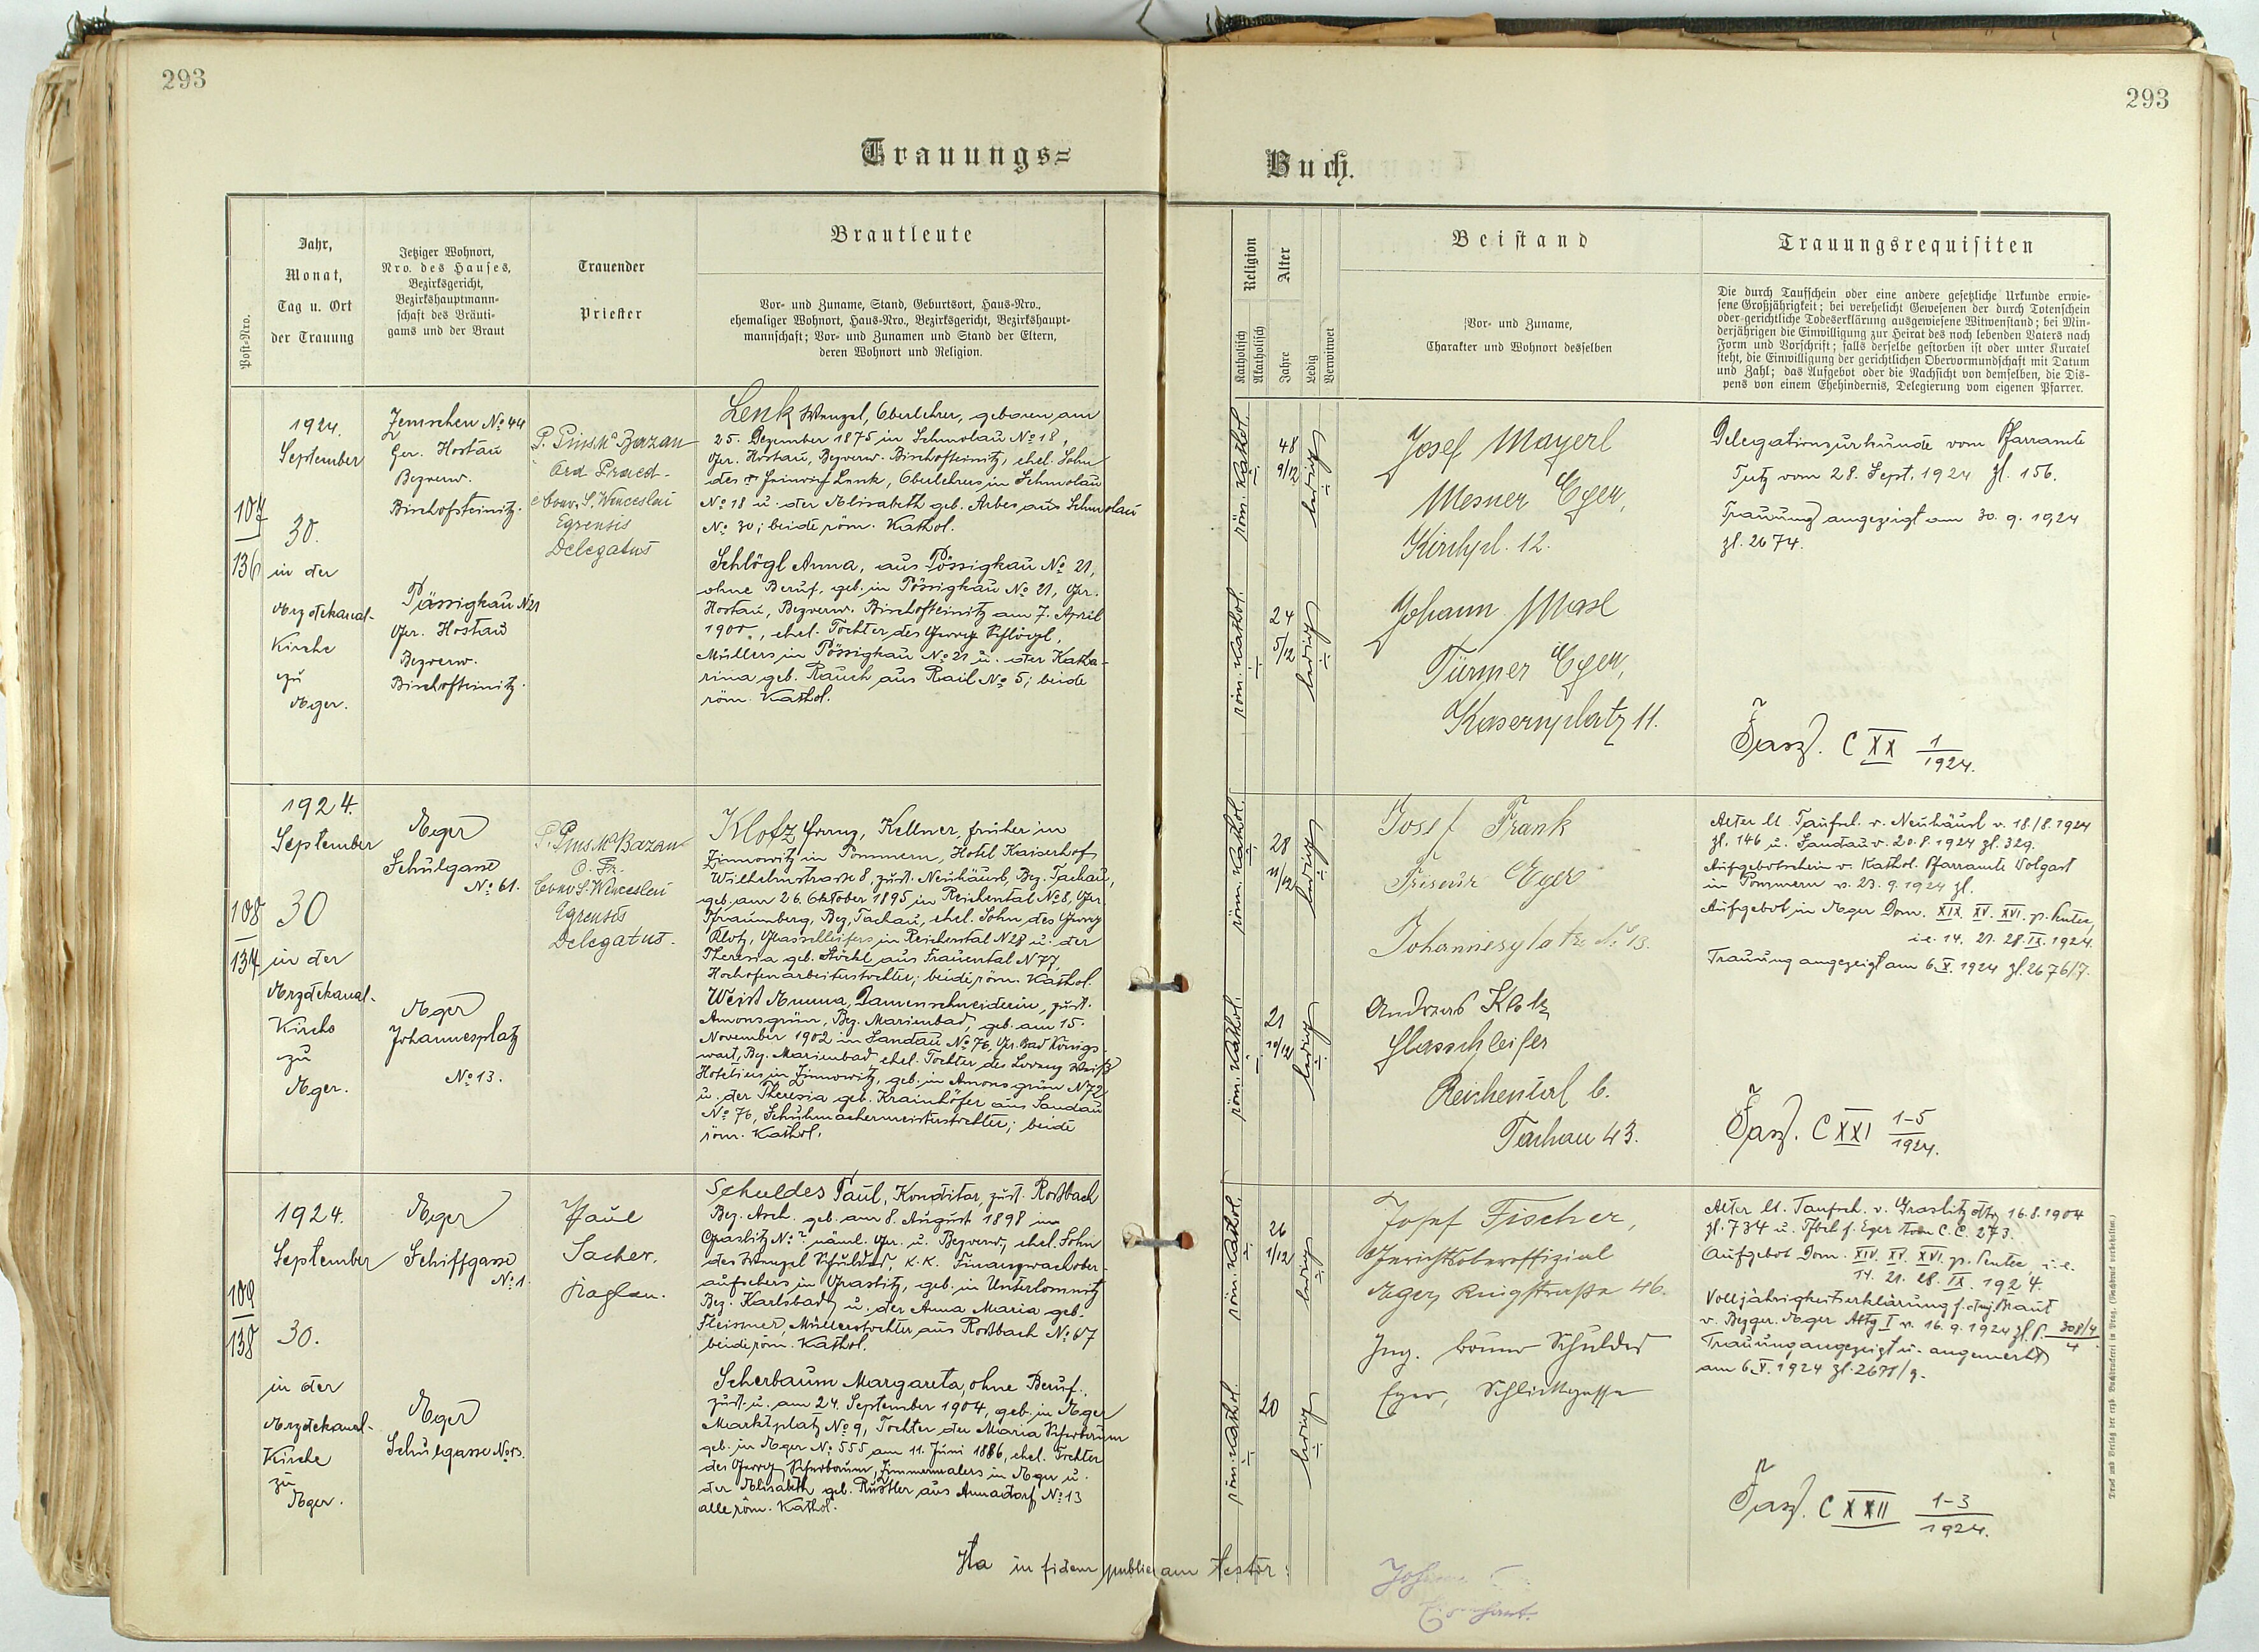 293
293
Trauungs=
Buch.
Post-Nro.
Jahr,
Monat,
Tag u. Ort
der Trauung
Jetziger Wohnort,
Nro. des Hauses,
Bezirksgericht,
Bezirkshauptmann-
schaft des Bräuti-
gams und der Braut
Trauender
Priester
Brautleute
Vor- und Zuname, Stand, Geburtsort, Haus-Nro.,
ehemaliger Wohnort, Haus-Nro., Bezirksgericht, Bezirkshaupt-
mannschaft; Vor- und Zunamen und Stand der Eltern,
deren Wohnort und Religion.
Religion
Katholisch
Akatholisch
Alter
Jahre
Ledig
Verwitwet
Beistand
Vor- und Zuname,
Charakter und Wohnort desselben
Trauungsrequisiten
Die durch Taufschein oder eine andere gesetzliche Urkunde erwie-
sene Großjährigkeit; bei verehelicht Gewesenen der durch Totenschein
oder gerichtliche Todeserklärung ausgewiesene Witwenstand; bei Min-
derjährigen die Einwilligung zur Heirat des noch lebenden Vaters nach
Form und Vorschrift; falls derselbe gestorben ist oder unter Kuratel
steht, die Einwilligung der gerichtlichen Obervormundschaft mit Datum
und Zahl; das Aufgebot oder die Nachsicht von demselben, die Dis-
pens von einem Ehehindernis, Delegierung vom eigenen Pfarrer.
107
136
1924.
September
30.
in der
Erzdekanal-
Kirche
zu
Eger.
Zemschen No 44
Ger. Hostau
Bezverw.
Bischofsteinitz.
Pössigkau No 21
Ger. Hostau
Bezverw.
Bischofteinitz.
P. Pius Ma Bazan
Ord. Praed.
Conv. S. Wenceslai
Egrensis
Delegatus
Lenk Wenzel, Oberlehrer, geboren am
25. Dezember 1875 in Schmolau No 18,
Ger. Hostau, Bezverw. Bischofteinitz, ehel. Sohn
des Lenk, Oberlehrers in Schmolau
No 18 u. der Elisabeth geb. Arbes aus Schmolau
No 30; beide röm. Kathol.
Schlögl Anna, aus Pössigkau No 21,
ohne Beruf, geb. in Pössigkau No 21, Ger.
Hostau, Bezverw. Bischofteinitz am 7. April
1900, ehel. Tochter des Georg Schlögl,
Müllers in Pössigkau No 21 u. der Katha-
rina geb. Rauch aus No 5; beide
röm. Kathol.
röm. Kathol.
48
9/12
ledig
röm. Kathol.
24
5/12
ledig
Josef Mayerl
Mesner Eger,
Kirchpl. 12.
Johann Masl
Türmer Eger,
Kasernplatz 11.
Delegationsurkunde vom Pfarramte
vom 28. Sept. 1924 zl. 156.
Trauung angezeigt am 30. 9. 1924
zl. 2674.
Fasz. C XX 1/1924.
108
137
1924.
September
30
in der
Erzdekanal-
Kirche
zu
Eger.
Eger
Schulgasse
No 61.
Eger
Johannesplatz
No 13.
P. Pius Ma Bazan
O. Pr.
Conv. S. Wenceslai
Egrensis
Delegatus.
Klotz Franz, Kellner, früher in
Zinnowitz in Pommern, Hotel Kaiserhof
Wilhelmstrasse 8, zust. Neuhäusl, Bez. Tachau,
geb. am 26. Oktober 1895 in Reichental No 8, Ger.
Pfraumberg, Bez. Tachau, ehel. Sohn des Georg
Klotz, Glasschleifers in Reichental N 28 u. der
Theresia geb. Stöckl aus Frauental N 77,
Hochofenarbeiterstochter; beide röm. Kathol.
Weist Emma, Damenschneiderin, zust.
Amonsgrün, Bez. Marienbad, geb. am 15.
November 1902 in Sandau No 76, Ger. Bad Königs-
wart, Bez. Marienbad ehel. Tochter des
Hoteliers in Zinnowitz, geb. in Amonsgrün N 72
u. der Theresia geb. Krainhöfer aus Sandau
No 76, Schuhmachermeisterstochter; beide
röm. Kathol.
röm. Kathol.
28
11/12
ledig
röm. Kathol.
21
10/12
ledig
Josef Frank
Friseur Eger
Johannesplatz No 13.
Andreas Klotz
Glasschleifer
Reichental b.
Tachau 43.
Alter lt. Taufsch. v. Neuhäusl v. 18/8. 1924
zl. 146 u. Sandau v. 20.8. 1924 zl. 329.
Aufgebotschein v. Kathol. Pfarramte Volgast
in Pommern v. 23. 9. 1924 zl.
Aufgebot in Eger Dom. XIV. XV. XVI. p. Pentec,
i.e. 14. 21. 28. IX. 1924.
Trauung angezeigt am 6. X. 1924 zl. 2676/7.
Fasz. C XXI 1-5/1924.
109
138
1924.
September
30.
in der
Erzdekanal-
Kirche
zu
Eger.
Eger
Schiffgasse
No 1.
Eger
Schulgasse No 13.
Paul
Sacher,
Kaplan.
Schuldes Paul, Konditor, zust. Roßbach
Bez. Asch. geb. am 8. August 1898 in
Graslitz No ? näml. Ger. u. Bezverw, ehel. Sohn
des Wenzel Schuldes, K.K. Finanzwachober-
aufsehers in Graslitz, geb. in Unterlomnitz
Bez. Karlsbad, u. der Anna Maria geb.
Fleisner, Müllerstochter aus Roßbach No 67
beide röm. Kathol.
Scherbaum Margareta, ohne Beruf,
zust. u. am 24. September 1904, geb. in Eger
Marktplatz No 9, Tochter der Maria Scherbaum
geb. in Eger No 555 am 11. Juni 1886, ehel. Tochter
des Georg Scherbaum, Zimmermalers in Eger u.
der Elisabeth geb. Rustler aus Annadorf No 13
alle röm. Kathol.
röm. Kathol.
26
1/12
ledig
röm. Kathol.
20
ledig
Josef Fischer,
Gerichtsoberoffizial
Eger, Ringstraße 46.
Ing. Bruno Schuldes
Eger, Schlickgasse
Alter lt. Taufsch. v. Graslitz dto 16.8.1904
zl. 734 u. Tfbch f. Eger tom C.C. 273.
Aufgebot Dom. XIV. XV. XVI. p. Pentec, i.e.
14. 21. 28. IX. 1924.
Volljährigkeitserklärung f. die Braut
v. Bezger. Eger Abtg I v. 16. 9. 1924 zl. P. 308/4
4
Trauung angezeigt u. angemerkt
am 6. X. 1924 zl. 2678/9.
Fasz. C XXII 1-3/1924.
Ita in fidem publicam testor:
Druck und Verlag der erzb. Buchdruckerei in Prag. (Nachdruck vorbehalten.)